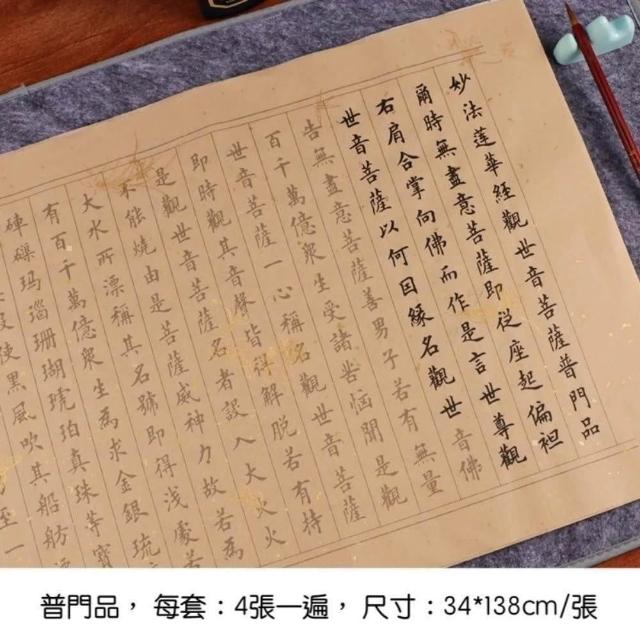 妙法蓮華經觀世音菩薩普門品
爾時無盡意菩薩即從座起偏袒
右肩合掌向佛而作是言世尊觀
世音菩薩以何因緣名觀世音佛
告無盡意菩薩善男子若有無量
百千萬億衆生受諸苦惱聞是觀
世音菩薩一心稱名觀世音菩薩
即時觀其音聲皆得解脫若有持
是觀世音菩薩名者設入大火火
不能燒由是菩薩威神力故若為
大水所漂稱其名號即得淺處若
有百千萬億衆生為求金銀琉
硨磲瑪瑙珊瑚琥珀真珠等寶
使黑風吹其船舫
至一
普門品，每套：4張一遍，尺寸：34*138cm/張